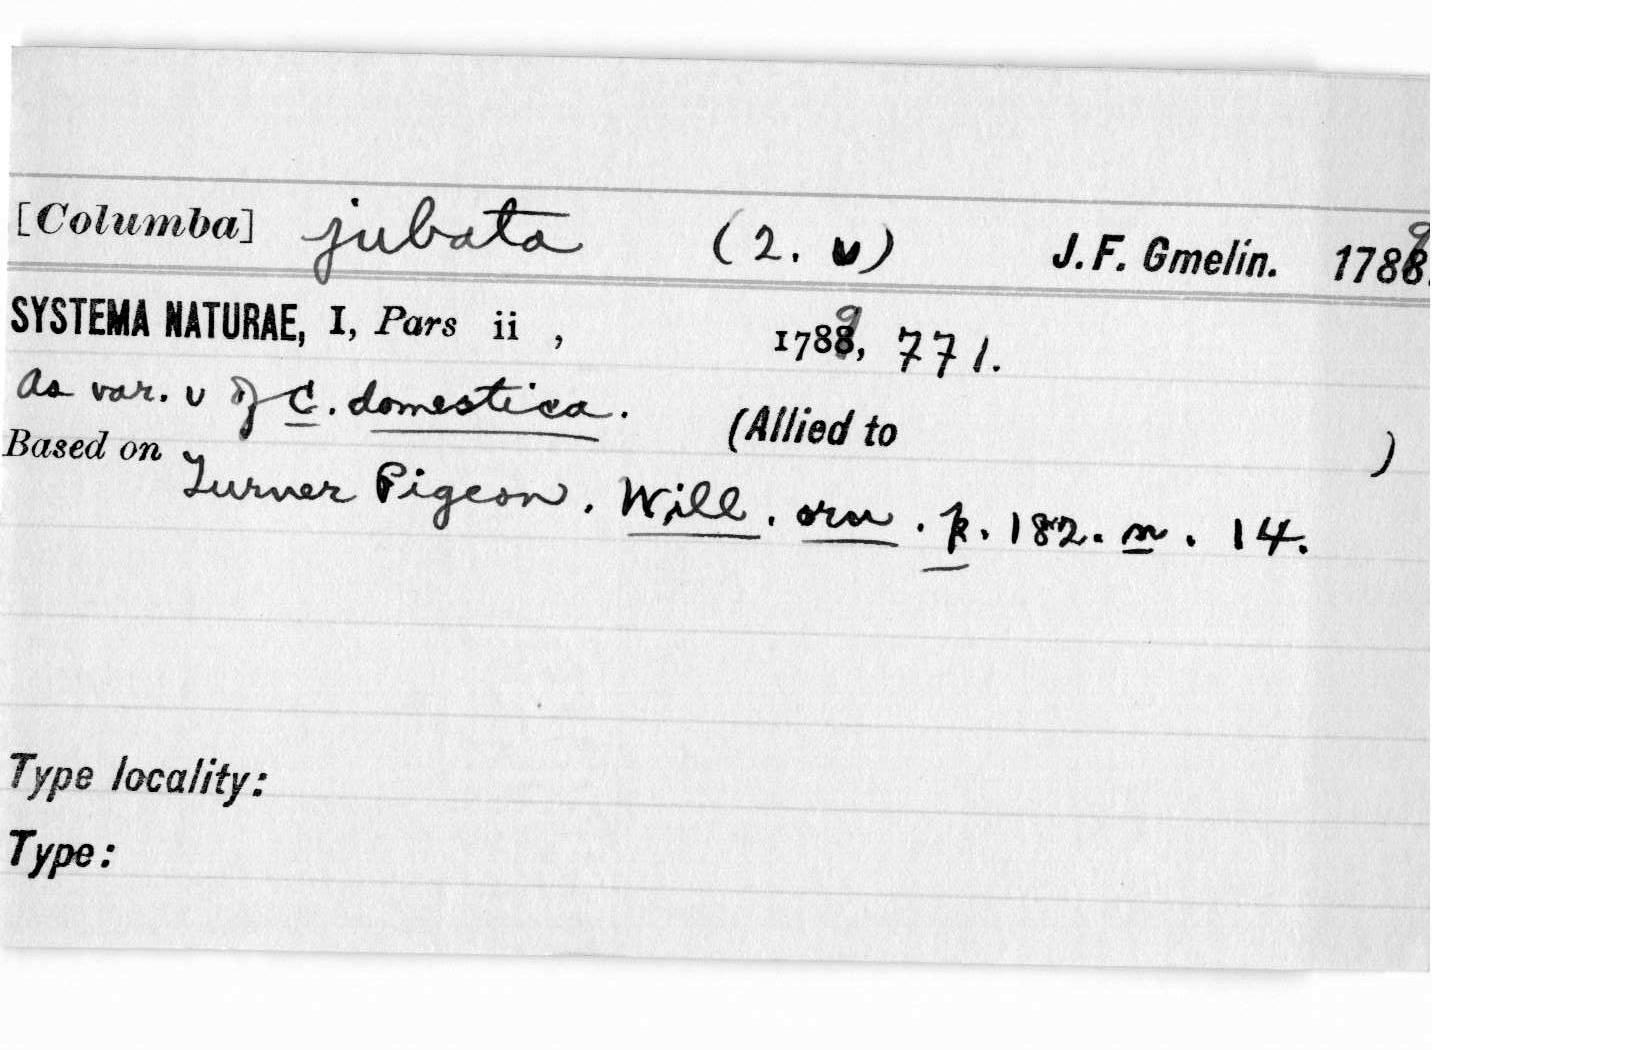 [Columba] jubata (2. υ) J. F. Gmelin. 1789.
SYSTEMA NATURAE, I, Pars ii , 1789, 771.
As var. υ of C. domestica. (Allied to )
Based on Turner Pigeon. Will. orn. p. 182. n. 14.
Type locality:
Type: